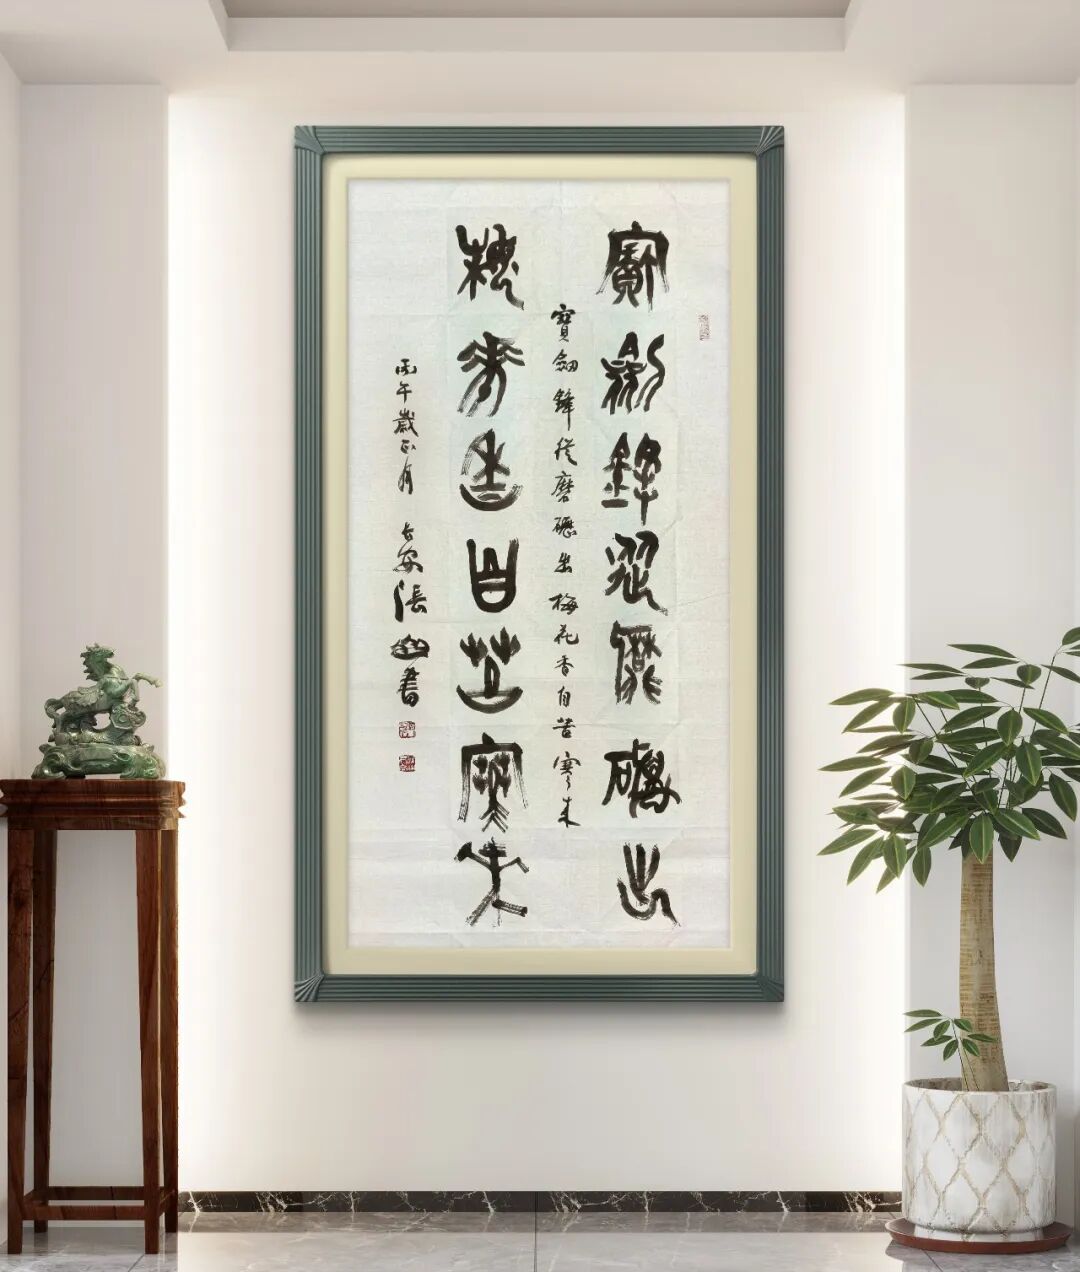 寶劍鋒從磨礪出
寶劍鋒從磨礪出梅花香自苦寒來
梅花香自苦寒來
丙午歲正月 長安張 書